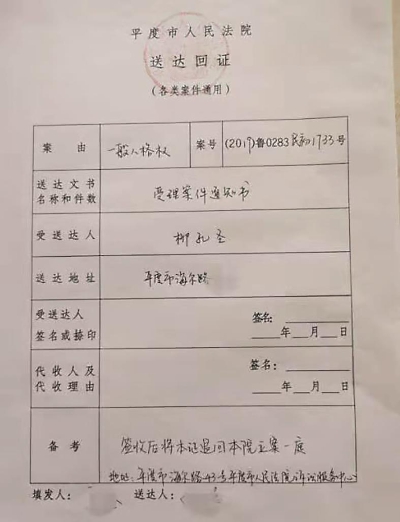 平度市人民法院
送达回证
(各类案件通用)
案由 一般人格权 案号 (2019)鲁0283民初1733号
送达文书名称和件数 受理案件通知书
受送达人 柳孔圣
送达地址 平度市海尔路
受送达人签名或捺印 签名:
年 月 日
代收人及代收理由 签名:
年 月 日
备考 签收后将本证退回本院立案一庭
地址:平度市海尔路43号平度市人民法院诉讼服务中心
填发人: 送达人: